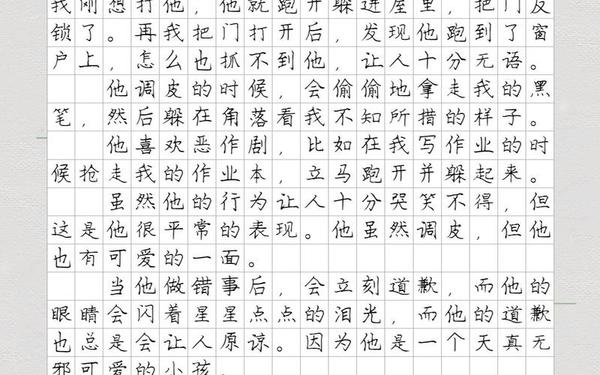 我刚想打他，他就跑开躲进屋里，把门反
锁了。再我把门打开后，发现他跑到了窗
户上，怎么也抓不到他，让人十分无语。
他调皮的时候，会偷偷地拿走我的黑
笔，然后躲在角落看我不知所措的样子。
他喜欢恶作剧，比如在我写作业的时
候抢走我的作业本，立马跑开并躲起来。
虽然他的行为让人十分哭笑不得，但
这是他很平常的表现。他虽然调皮，但他
也有可爱的一面。
当他做错事后，会立刻道歉，而他的
眼睛会闪着星星点点的泪光，而他的道歉
也总是会让人原谅。因为他是一个天真无
邪可爱的小孩。